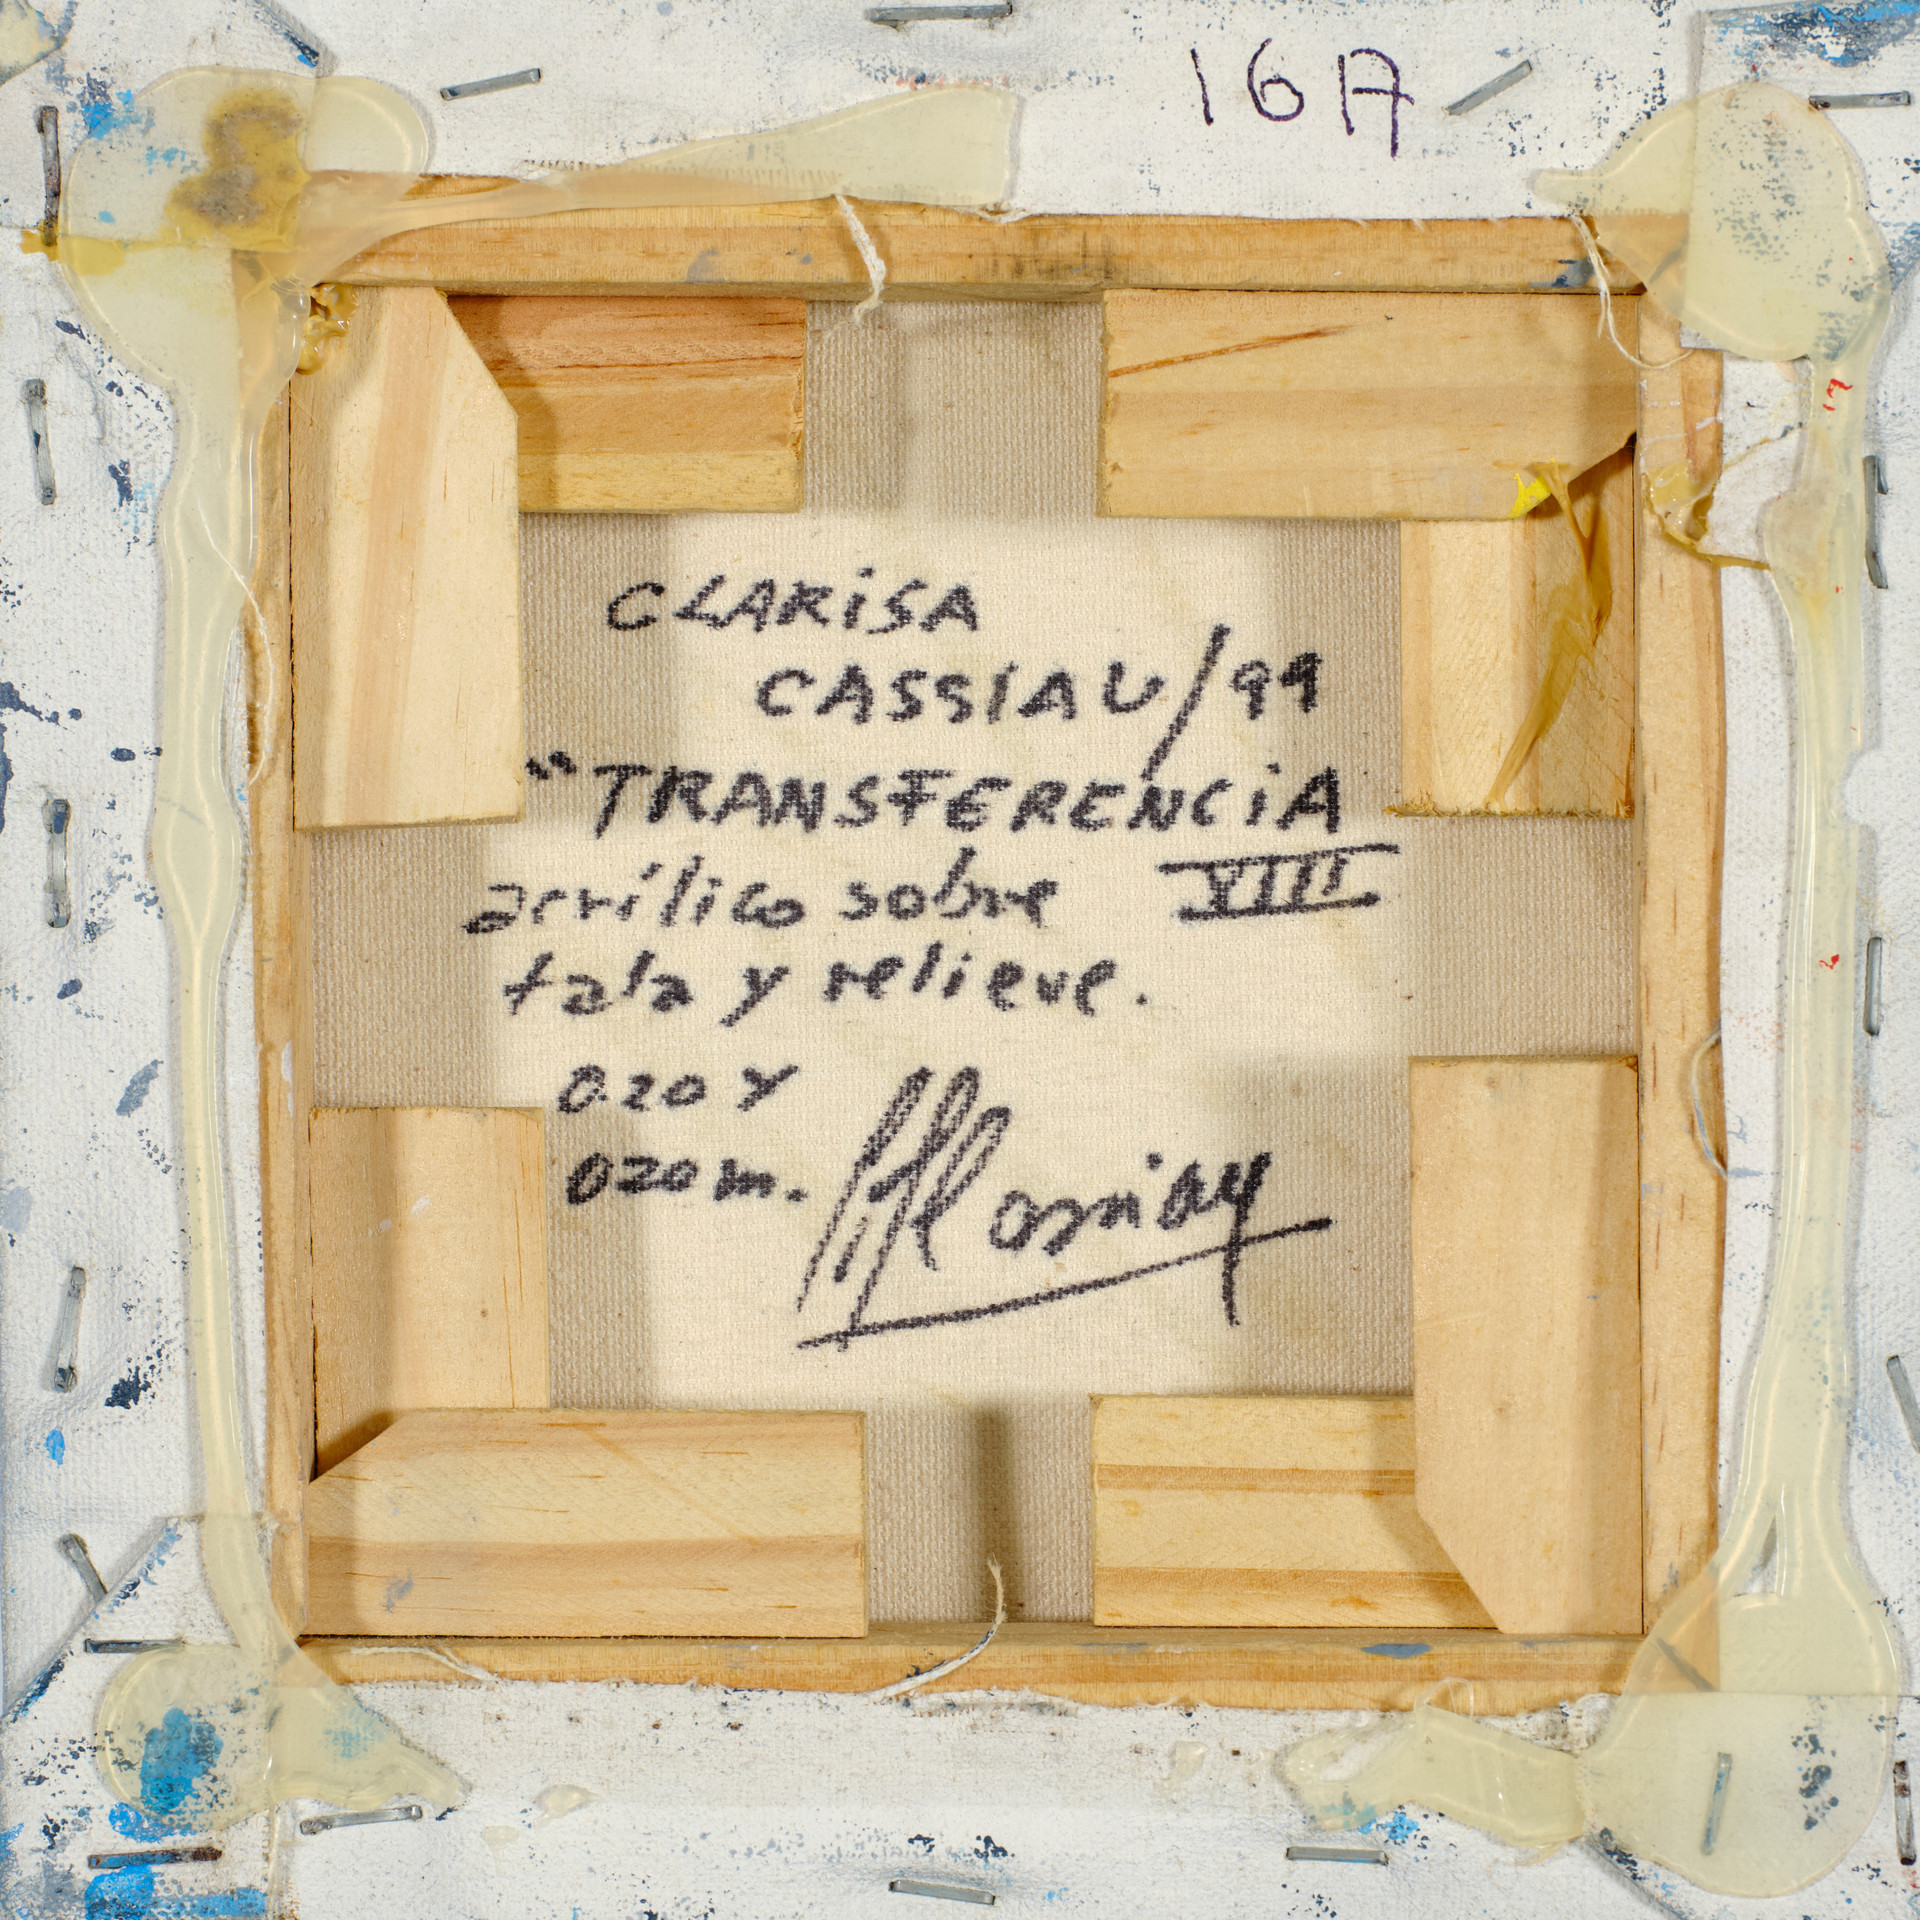 16A
CLARiSA
CASSIAU/99
"TRANSFERENCiA
VIII
acrílico sobre
tala y relieve.
0.20 x
020 m.
Cassiau